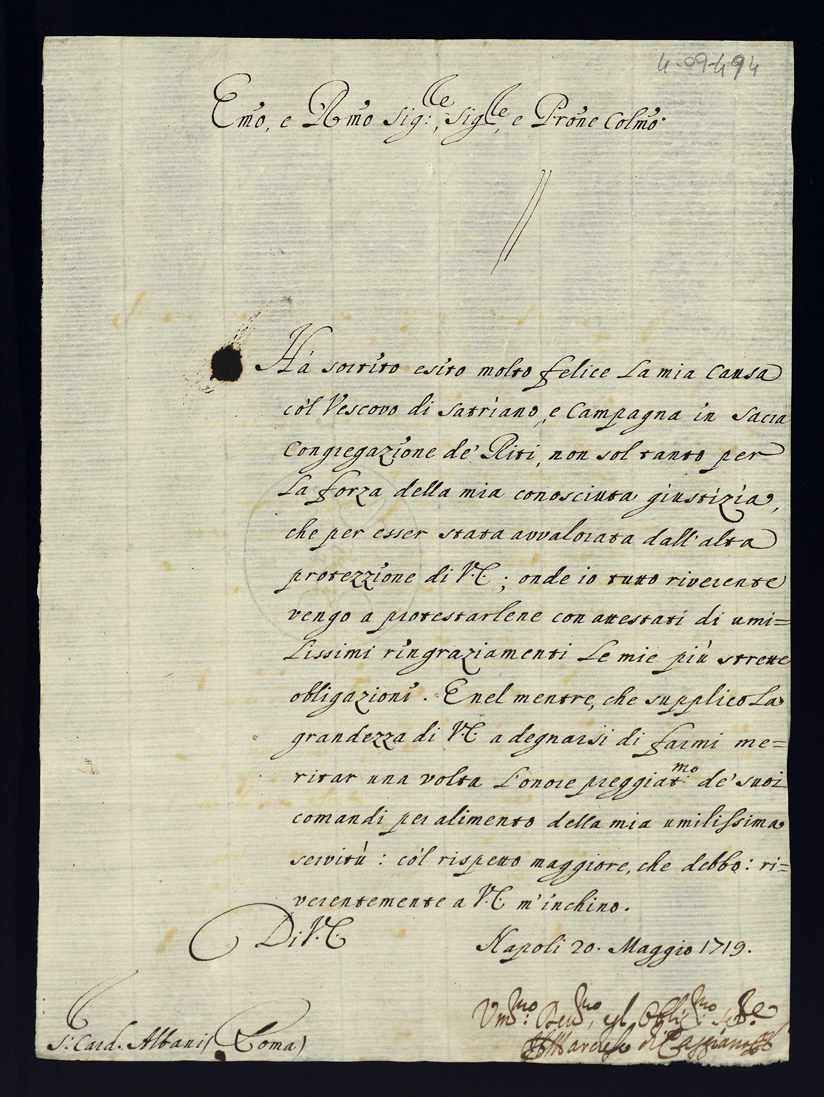 4-09-494
Emo, e Rmo Sig:re, Sigre, e Prone Colmo
Há sortito esito molto felice la mia Causa
cól Vescovo di Satriano, e Campagna in Sacra
Congregazione de' Riti, non sol tanto per
la forza della mia conosciuta giustizia,
che per esser stata avvalorata dall'alta
protezzione di V.E.; onde io tutto riverente
vengo a protestarlene con attestati di umi=
lissimi ringraziamenti le mie più strette
obligazioni. E nel mentre, che supplico la
grandezza di V.E. a degnarsi di farmi me=
ritar una volta l'onore preggiatmo de' suoi
comandi per alimento della mia umilissima
servitù: cól rispetto maggiore, che debbo: ri=
verentemente a V.E. m'inchino.
Di V.E.
Napoli 20. Maggio 1719.
S.r Card. Albani (Roma)
Vmo: Devmo, ed Obligmo
Il Marchese di